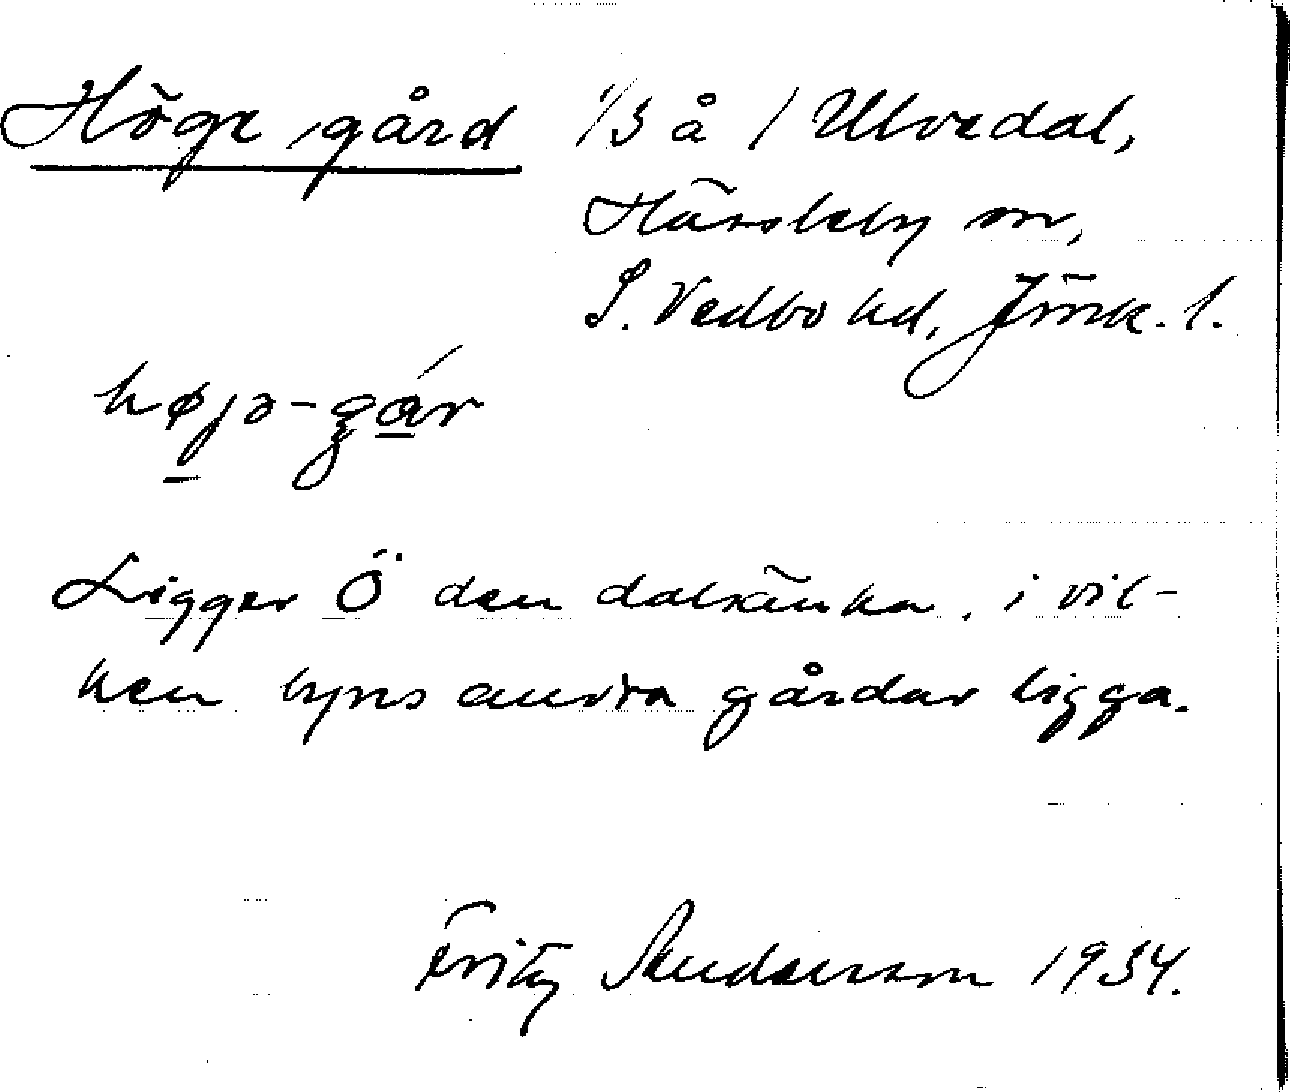 Höge gård 1/3 å 1 Ulvedal,
Hässleby sn,
S. Vedbo hd, Jönk. l.
højə-gár
Ligger Ö den dalsänka, i vil-
ken byns andra gårdar ligga.
Fritz 1934.